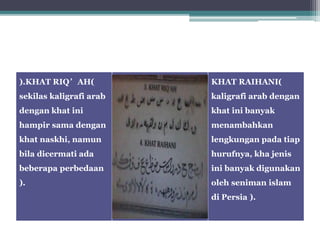 ).KHAT RIQ’ AH(
sekilas kaligrafi arab
dengan khat ini
hampir sama dengan
khat naskhi, namun
bila dicermati ada
beberapa perbedaan
).
3. KHAT RIQ'AH
4. KHAT RAIHANI
KHAT RAIHANI(
kaligrafi arab dengan
khat ini banyak
menambahkan
lengkungan pada tiap
hurufnya, kha jenis
ini banyak digunakan
oleh seniman islam
di Persia ).